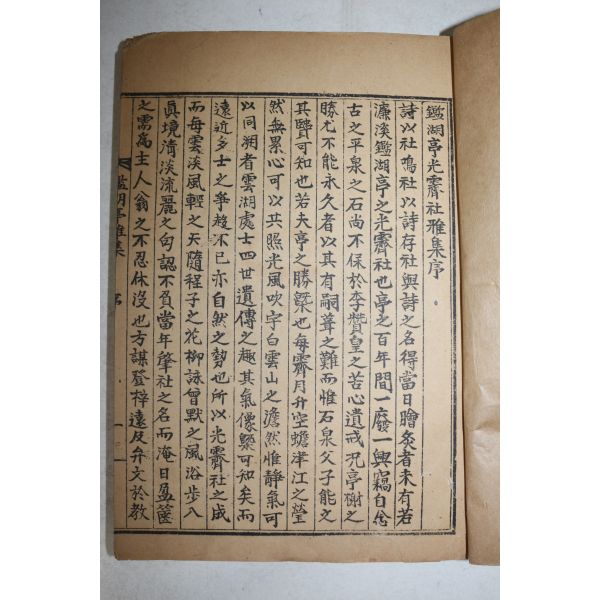 鑑湖亭光霽社雅集序
詩以社鳴社以詩存社與詩之名得當日膾炙者未有若
濂溪鑑湖亭之光霽社也亭之百年間一廢一興竊自念
古之平泉之石尚不保於李贊皇之苦心遺戒况亭榭之
勝尤不能永久者以其有嗣葺之難而惟石泉父子能文
其賢可知也若夫亭之勝槩也每霽月升空蟾津江之瑩
然無累心可以共照光風吹宇白雲山之澹然惟靜氣可
以同溯者雲湖處士四世遺傳之趣其氣像槩可知矣而
遠近多士之爭趍不已亦自然之勢也所以光霽社之成
而每雲淡風輕之天隨程子之花柳詠曾默之風浴步八
眞境清淡流麗之句認不負當年肇社之名而淹日盈篋
之需爲主人翁之不忍休沒也方謀登梓遠及弁文於教
鑑湖亭雅集 序 一